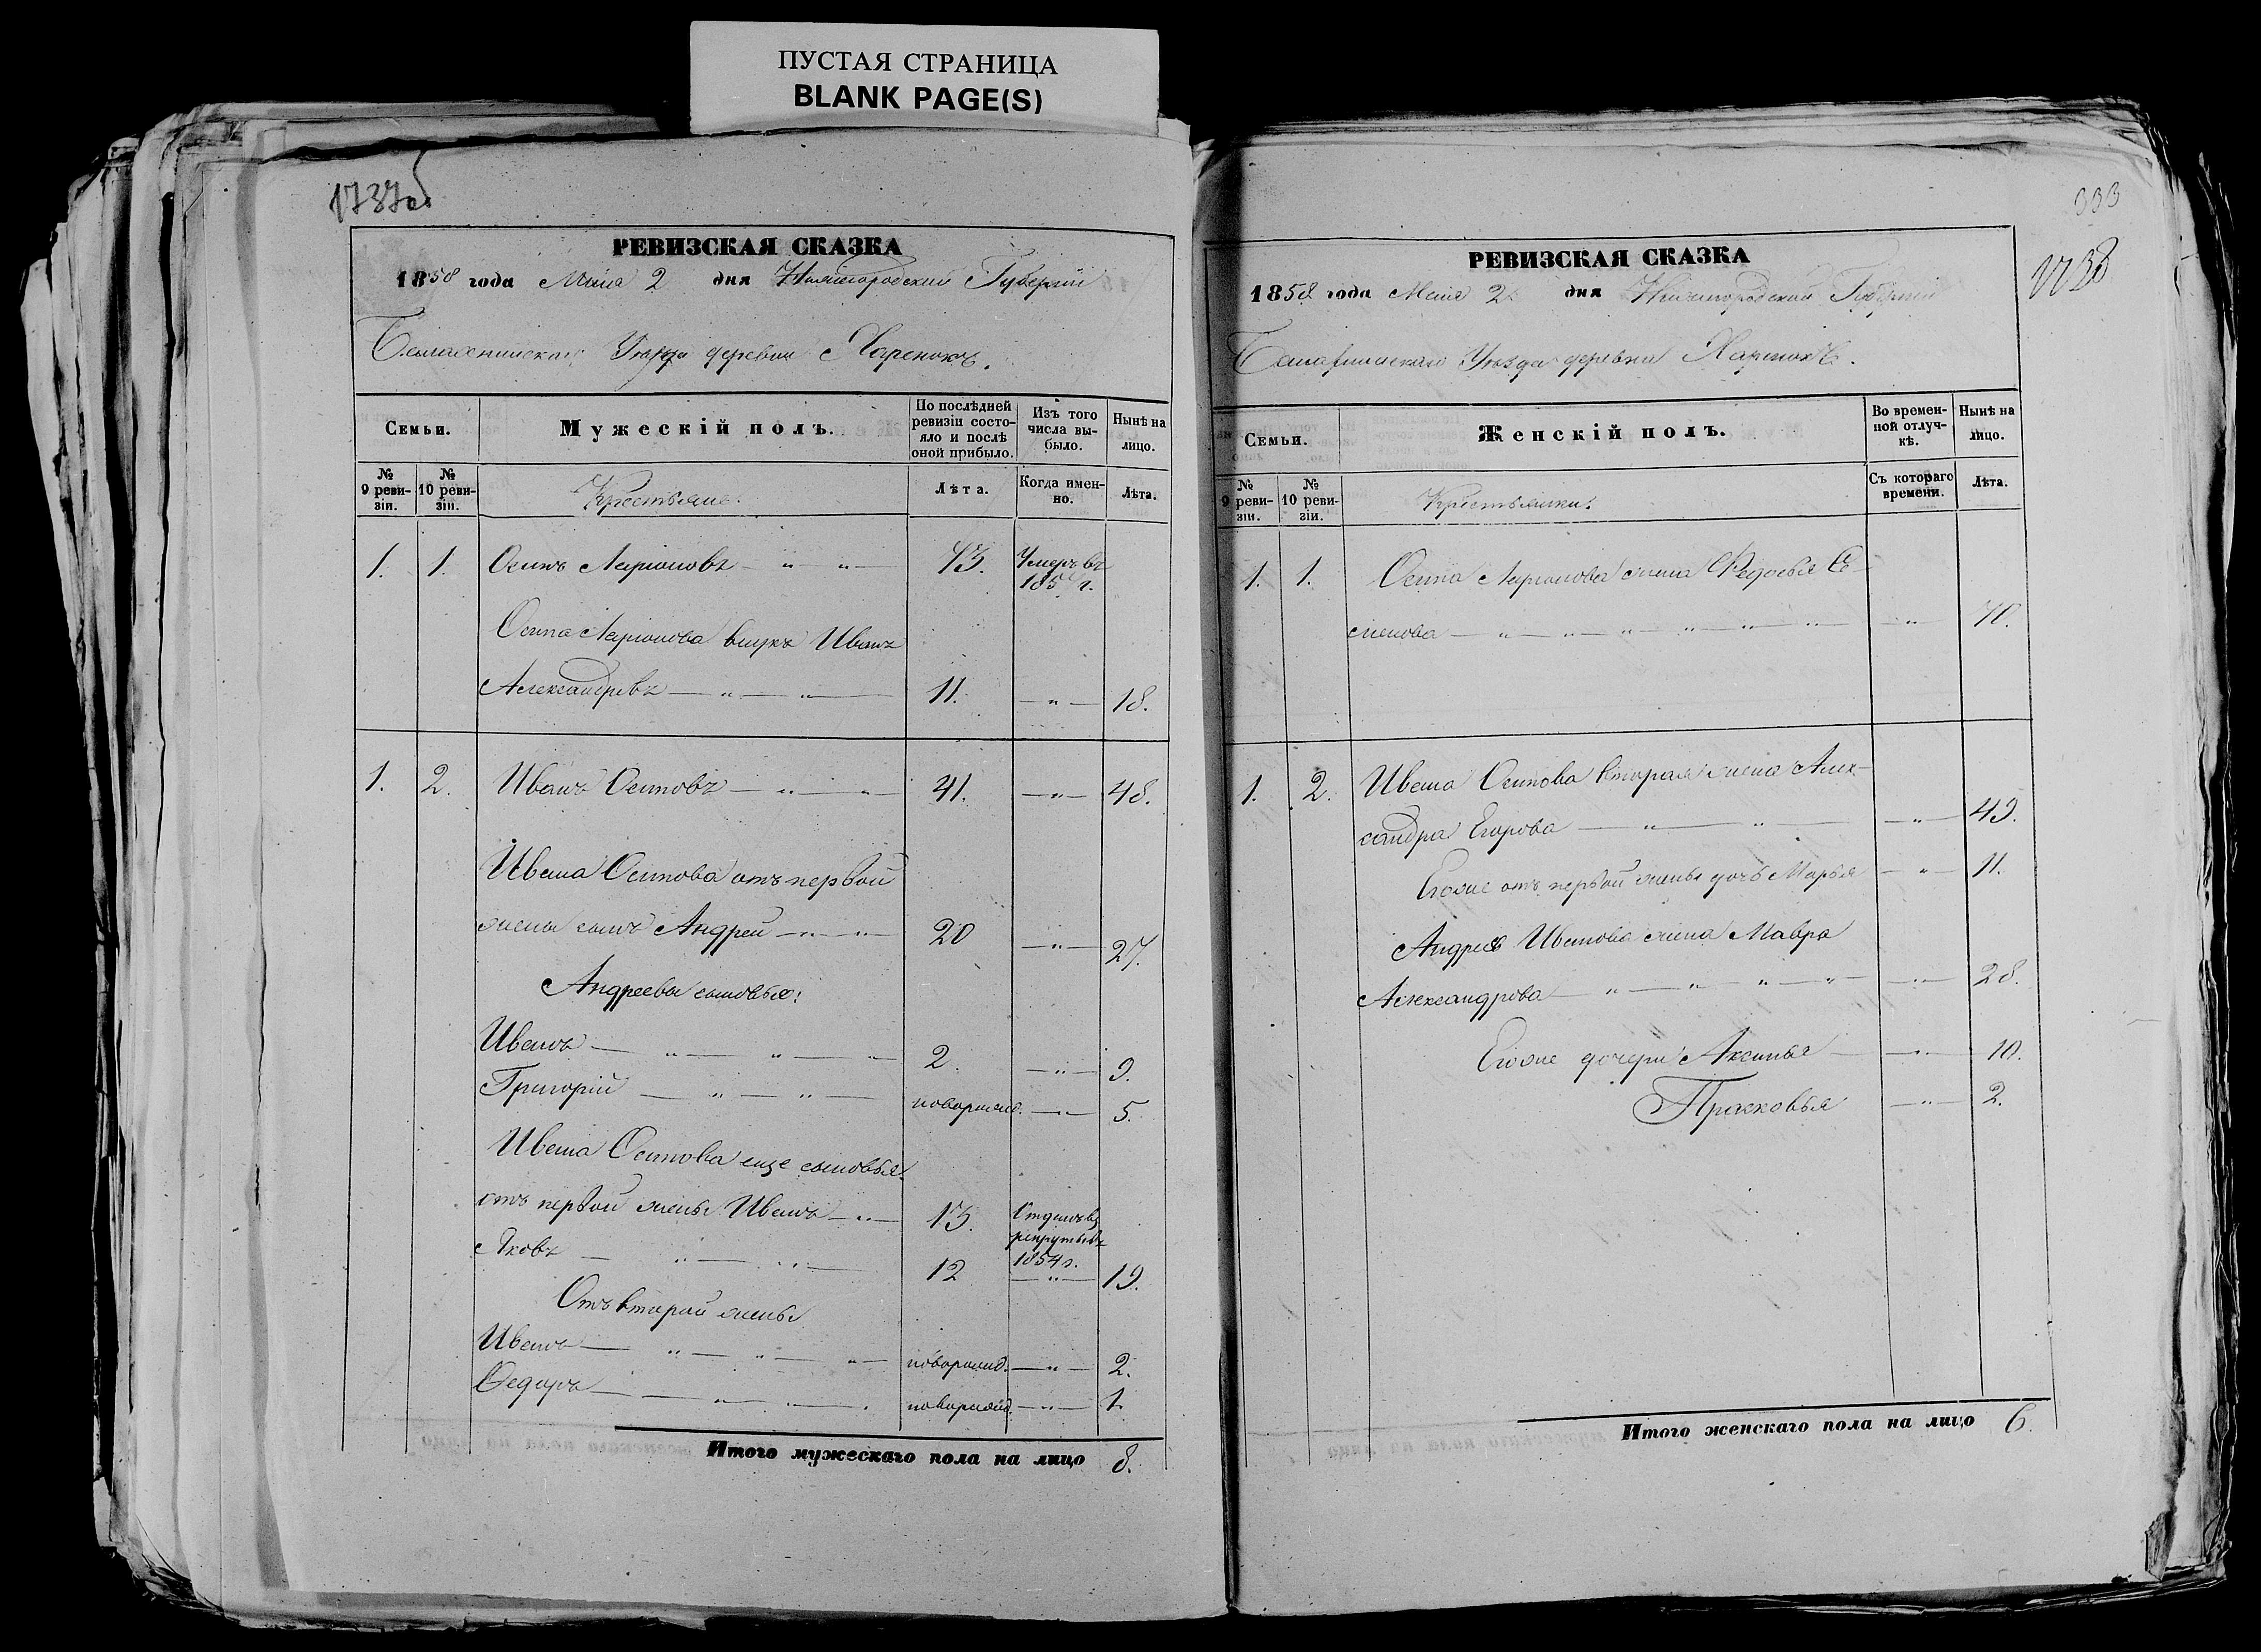 ПУСТАЯ СТРАНИЦА
BLANK PAGE(S)
1737об
РЕВИЗСКАЯ СКАЗКА
1858 года Маія 2 дня Нижегородской Губерніи
Уѣзда деревни
Семьи.
Мужескій полъ.
По послѣдней ревизіи состояло и послѣ оной прибыло.
Изъ того числа выбыло.
Нынѣ на лицо.
№ 9 ревизіи.
№ 10 ревизіи.
Крестьяне.
Лѣта.
Когда именно.
Лѣта.
1. 1. Осипъ Ларіоновъ — „ — „ — 73. Умеръ въ
Осипа Ларіонова внукъ Иванъ
Александровъ — „ — „ — 11. — „ — 18.
1. 2. Иванъ Осиповъ — „ — „ — 41. — „ — 48.
Ивана Осипова отъ первой
жены сынъ Андрей — „ — „ — 20 — „ — 27.
Андреевы сыновья:
Иванъ — „ — „ — „ — 2. — „ — 9.
Григорій — „ — „ — новорожд. — „ — 5.
Ивана Осипова еще сыновья
отъ первой жены Иванъ — „ — 15. Отданъ въ
рекруты въ
1854 г.
Яковъ — „ — „ — 12 — „ — 19.
Отъ второй жены
Иванъ — „ — „ — „ — новорожд. — „ — 2.
Федоръ — „ — „ — новорожд. — „ — 1.
Итого мужескаго пола на лицо 8.
333
1738
РЕВИЗСКАЯ СКАЗКА
1858 года Маія 2 дня Нижегородской Губерніи
Уѣзда деревни
Семьи.
Женскій полъ.
Во временной отлучкѣ.
Нынѣ на лицо.
№ 9 ревизіи.
№ 10 ревизіи.
Крестьянки.
Съ котораго времени.
Лѣта.
1. 1. Осипа Ларіонова жена Федосья Се-
менова — „ — „ — „ — „ — „ — „ — „ — 70.
1. 2. Ивана Осипова вторая жена Алек-
сандра Егорова — „ — „ — „ — 49.
Егоже отъ первой жены дочь Марья — „ — 11.
Андрея Иванова жена Мавра
Александрова — „ — „ — „ — „ — „ — 28.
Егоже дочери Аксинья — „ — 10.
Прасковья — „ — 2.
Итого женскаго пола на лицо 6.